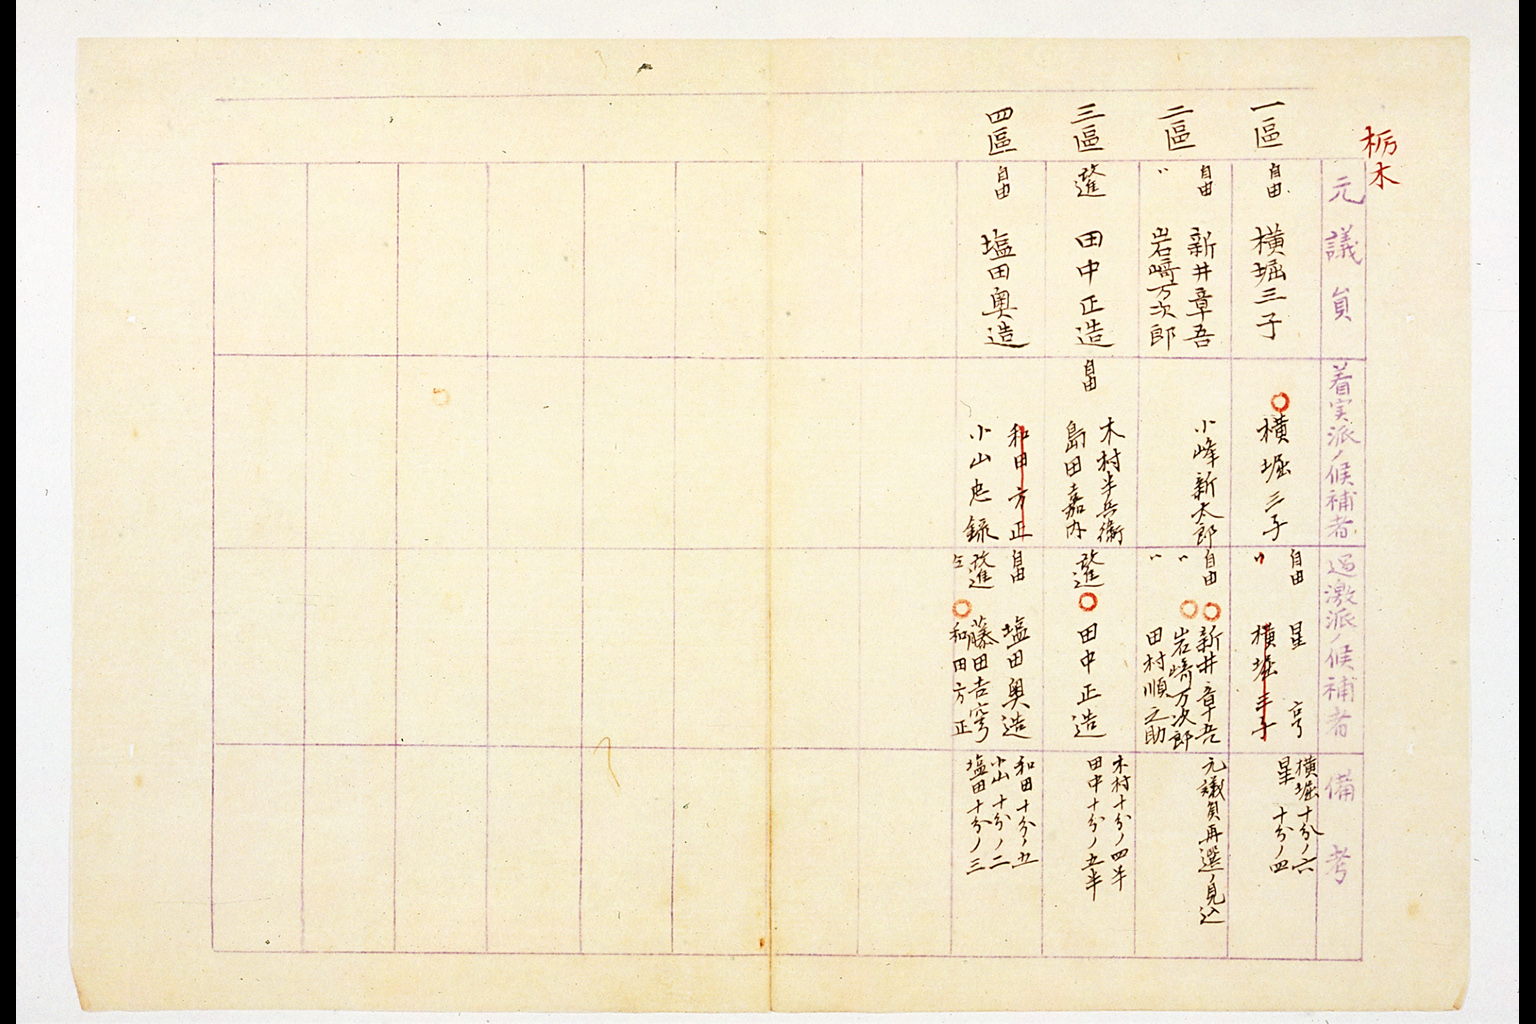 栃木
元議員
着実派ノ候補者
過激派ノ候補者
備考
一區
自由
横堀三子
横堀三子
自由
星亨
〃
横堀三子
横堀十分ノ六
星十分ノ四
二區
自由
新井章吾
〃
岩﨑万次郎
小峰新太郎
自由
新井章吾
〃
岩﨑万次郎
〃
田村順之助
元議員再選ノ見込
三區
改進
田中正造
自由
木村半兵衛
島田嘉内
改進
田中正造
木村十分ノ四半
田中十分ノ五半
四區
自由
塩田奥造
和田方正
小山忠録
自由
塩田奥造
改進
藤田吉亨
仝
和田方正
和田十分ノ五
小山十分ノ二
塩田十分ノ三